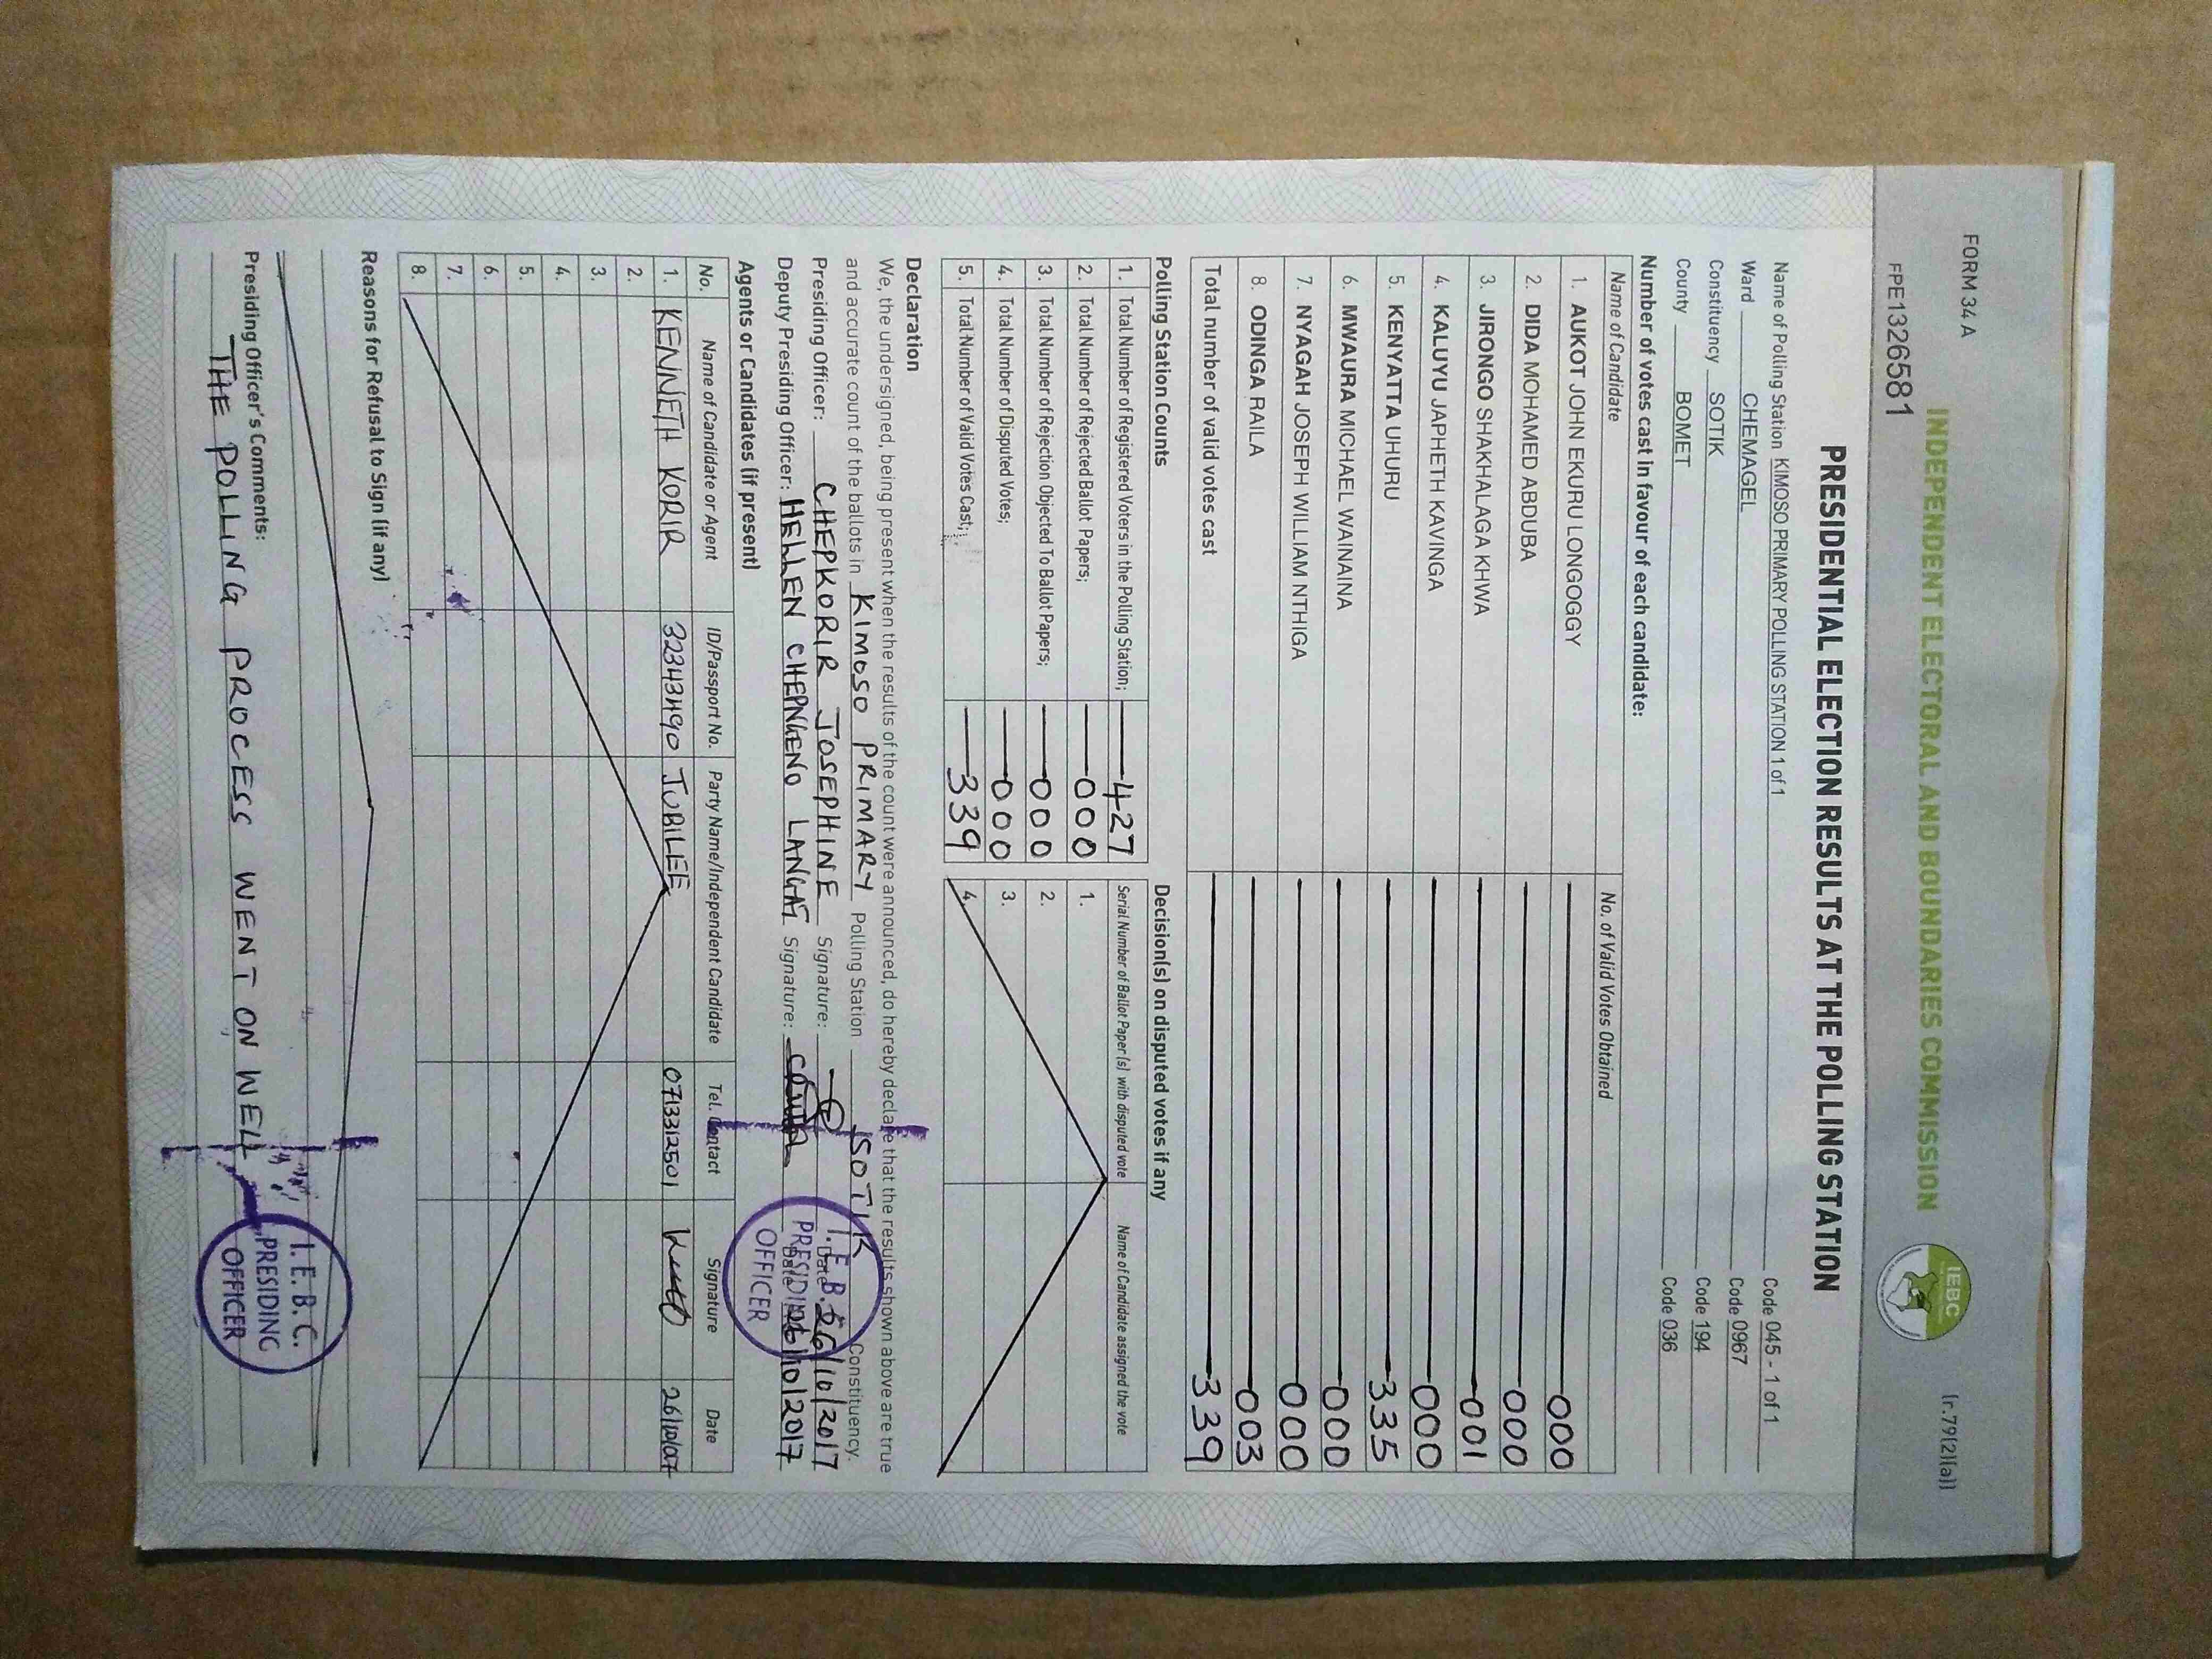 FORM 34 A
(r.79(2)(a))
FPE1326581
INDEPENDENT ELECTORAL AND BOUNDARIES COMMISSION
IEBC
PRESIDENTIAL ELECTION RESULTS AT THE POLLING STATION
Name of Polling Station KIMOSO PRIMARY POLLING STATION 1 of 1 Code 045 - 1 of 1
Ward CHEMAGEL Code 0967
Constituency SOTIK Code 194
County BOMET Code 036
Number of votes cast in favour of each candidate:
Name of Candidate No. of Valid Votes Obtained
1. AUKOT JOHN EKURU LONGOGGY 000
2. DIDA MOHAMED ABDUBA 000
3. JIRONGO SHAKHALAGA KHWA 001
4. KALUYU JAPHETH KAVINGA 000
5. KENYATTA UHURU 335
6. MWAURA MICHAEL WAINAINA 000
7. NYAGAH JOSEPH WILLIAM NTHIGA 000
8. ODINGA RAILA 003
Total number of valid votes cast 339
Polling Station Counts
1. Total Number of Registered Voters in the Polling Station; 427
2. Total Number of Rejected Ballot Papers; 000
3. Total Number of Rejection Objected To Ballot Papers; 000
4. Total Number of Disputed Votes; 000
5. Total Number of Valid Votes Cast; 339
Decision(s) on disputed votes if any
Serial Number of Ballot Paper(s) with disputed vote Name of Candidate assigned the vote
1.
2.
3.
4.
Declaration
We, the undersigned, being present when the results of the count were announced, do hereby declare that the results shown above are true
and accurate count of the ballots in KIMOSO PRIMARY Polling Station SOTIK Constituency.
Presiding Officer: CHEPKORIR JOSEPHINE Signature: Date 26/10/2017
Deputy Presiding Officer: HELLEN CHEPNGENO LANGAT Signature: Date 26/10/2017
I.E.B.C.
PRESIDING
OFFICER
Agents or Candidates (if present)
No. Name of Candidate or Agent ID/Passport No. Party Name/Independent Candidate Tel. Contact Signature Date
1. KENNETH KORIR 32343490 JUBILEE 0713312501
2.
3.
4.
5.
6.
7.
8.
Reasons for Refusal to Sign (if any)
Presiding Officer's Comments:
THE POLLING PROCESS WENT ON WELL
I.E.B.C.
PRESIDING
OFFICER